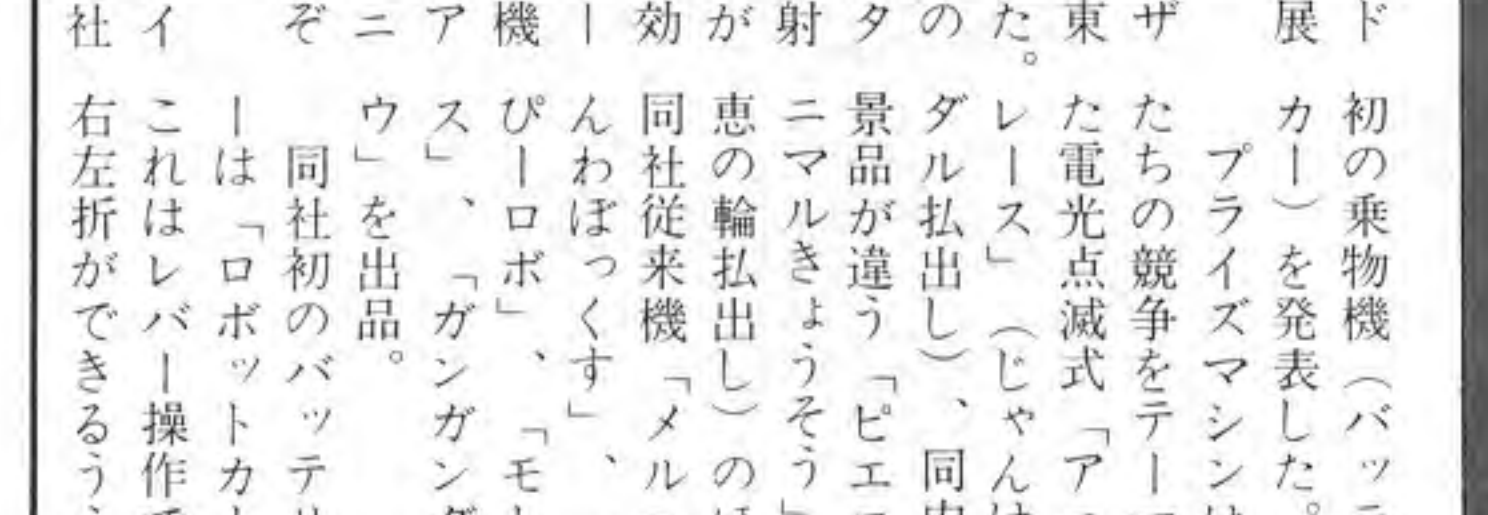 ド
展
ザ
東
た。
の
タ
射
が
効
ー
機
ア
ニ
ぞ
イ
社
初の乗物機（バッテ
カー）を発表した。
プライズマシンは
たちの競争をテー
た電光点滅式「ア
レース」（じゃんけ
ダル払出し）、同
景品が違う「ピエ
ニマルきょうそう」
恵の輪払出し）のほ
同社従来機「メル
んわぼっくす」、
ぴーロボ」、「モ
ス」、「ガンガン
ウ」を出品。
同社初のバッテリ
ーは「ロボットカ
これはレバー操作で
右左折ができるう